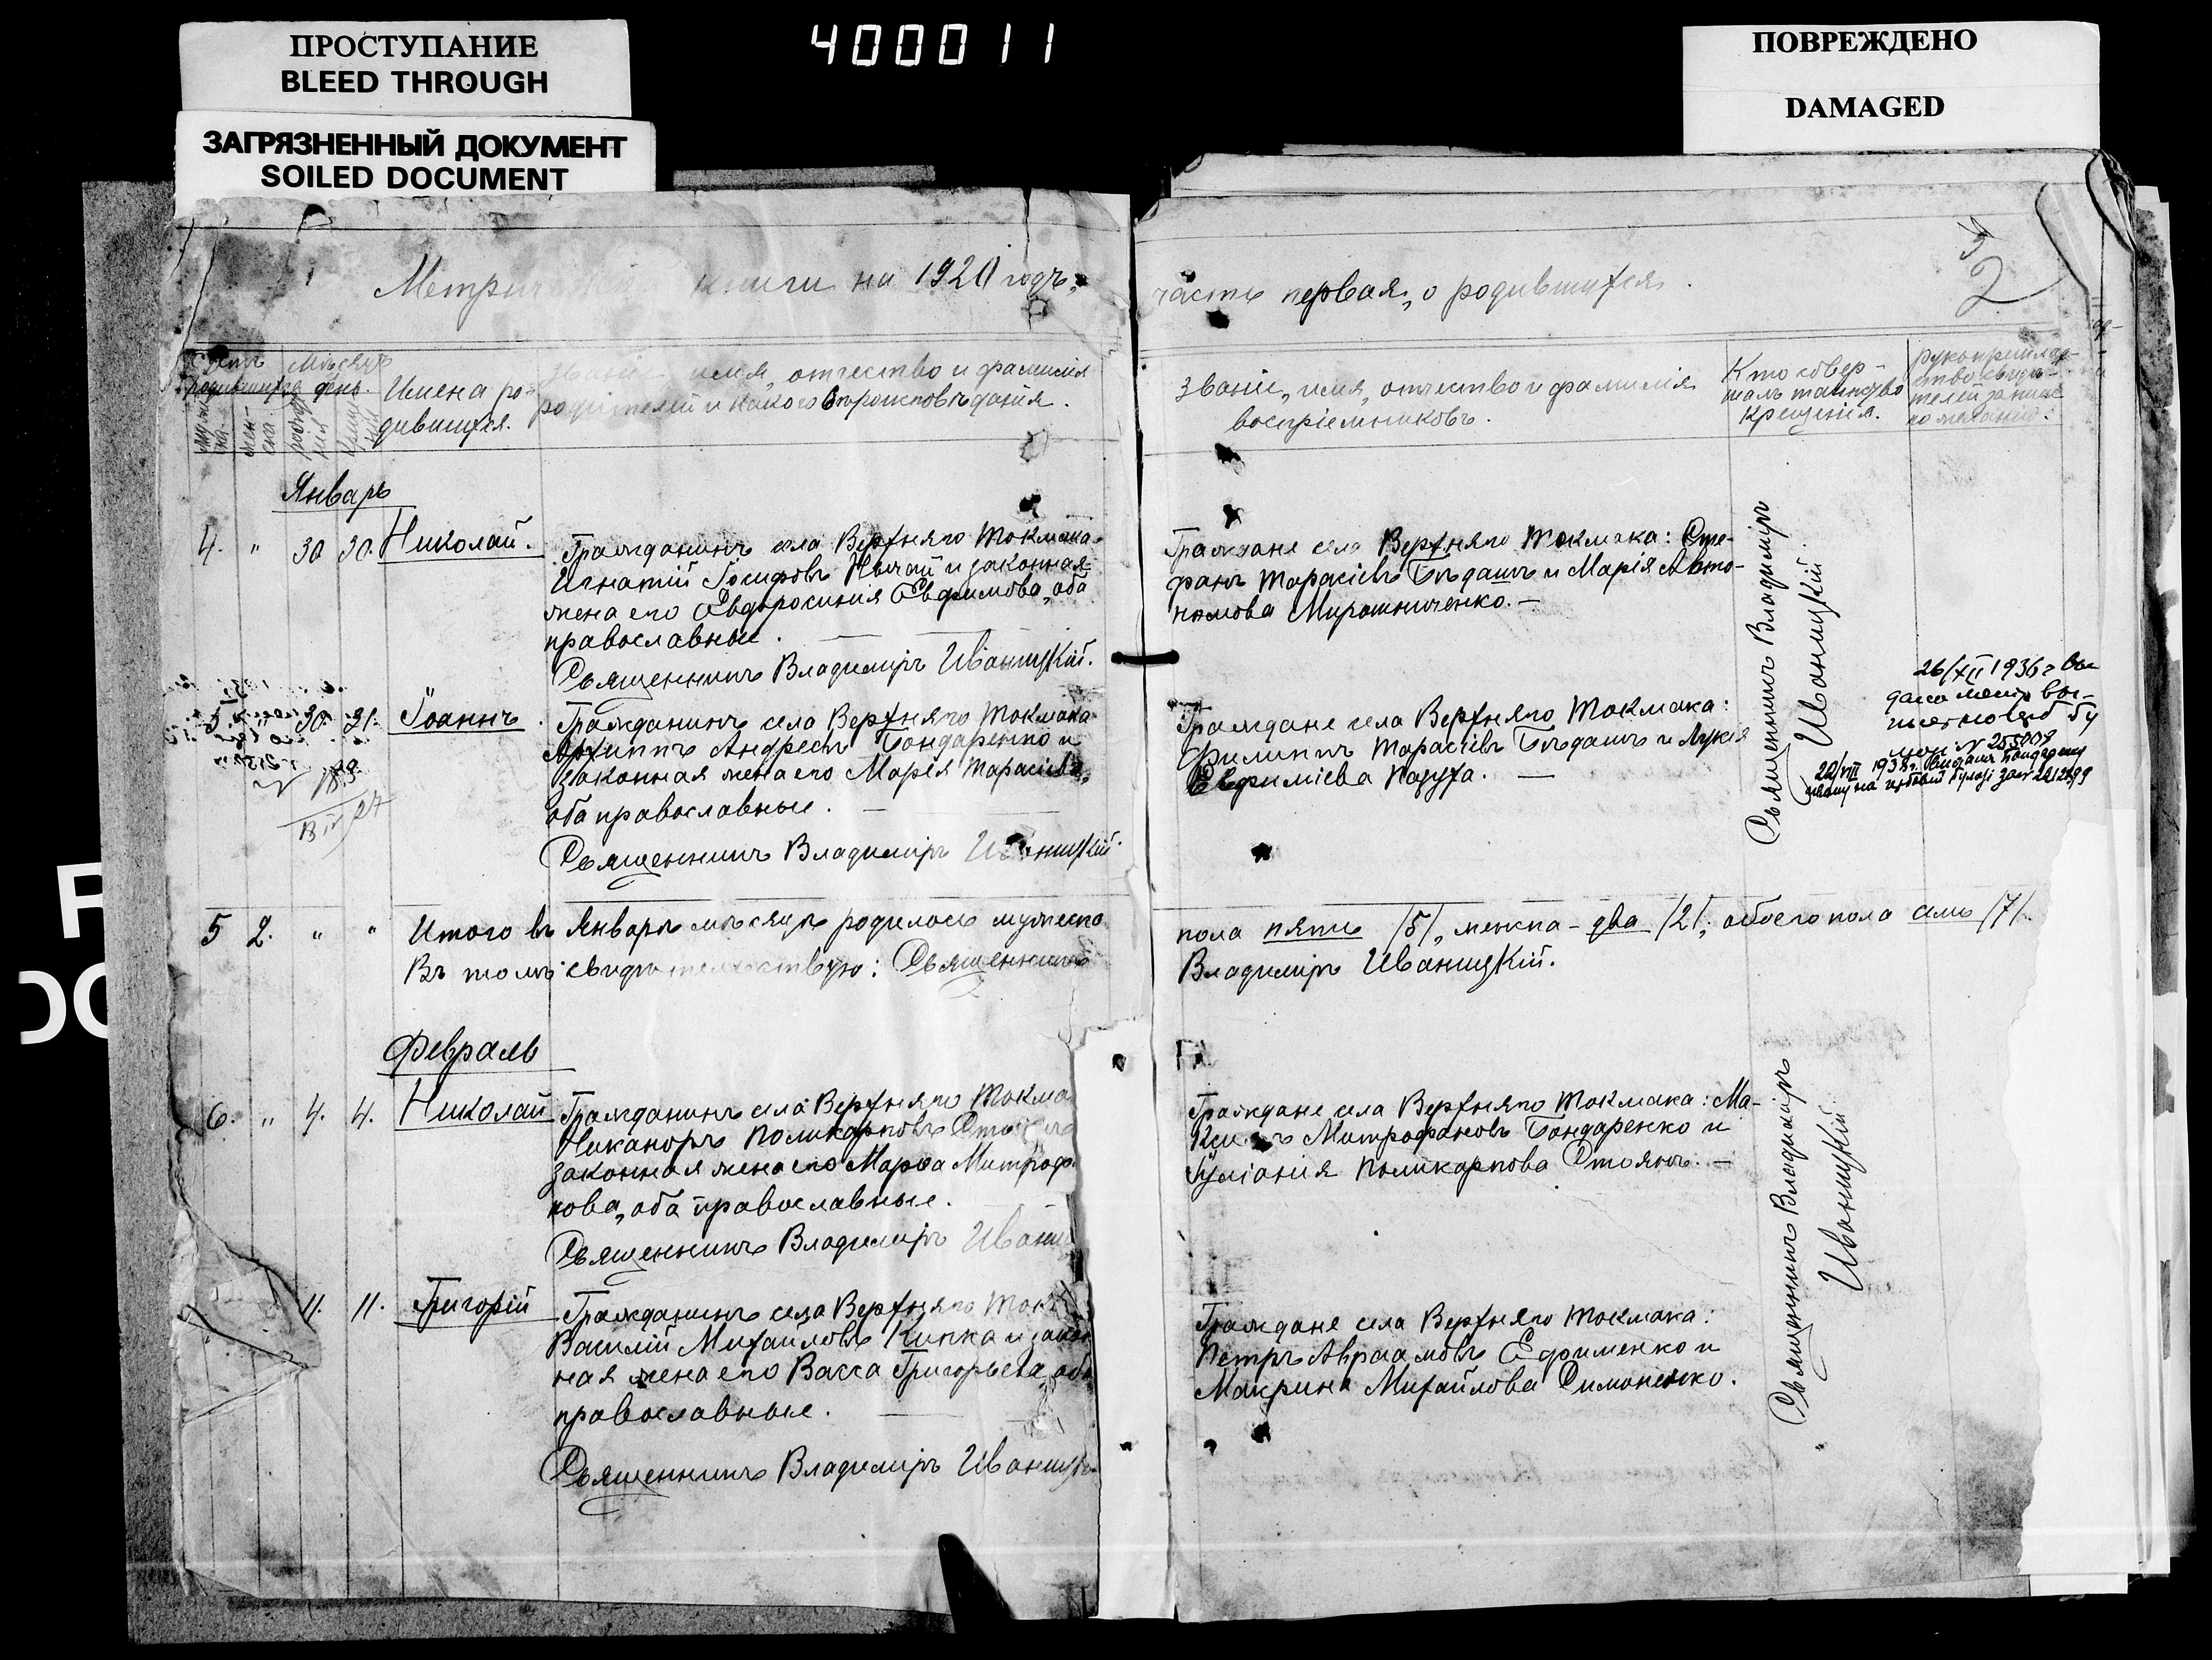 ПРОСТУПАНИЕ
BLEED THROUGH
ЗАГРЯЗНЕННЫЙ ДОКУМЕНТ
SOILED DOCUMENT
400011
ПОВРЕЖДЕНО
DAMAGED
книги на 1920 годъ,
часть первая, о родившихся.
2
Счетъ родившихся
Мѣсяцъ день.
Имена ро-
дившихся.
Званіе, имя, отчество и фамилія
родителей и какого вѣроисповѣданія.
Званіе, имя, отчество и фамилія
воспріемниковъ.
Кто совер-
шалъ таинство
крещенія.
Рукоприклад-
ство свидѣ-
телей записи
по желанію.
Январь
4. " 30 30. Николай.
Гражданинъ села Верхняго Токмака
Игнатій Іосифовъ и законная
жена его Евдросинія Евфимова, оба
православные.
Священникъ Владиміръ Иваницкій.
Граждане села Верхняго Токмака: Сте-
фанъ Тарасіевъ Бѣдашъ и Марія Авто-
номова Мирошниченко. —
Священникъ Владиміръ
Иваницкій
5. " 30. 31. Іоаннъ.
Гражданинъ села Верхняго Токмака
Архиппъ Андреевъ Бондаренко и
законная жена его Марія Тарасіева,
оба православные. —
Священникъ Владиміръ Иваницкій.
Граждане села Верхняго Токмака:
Филиппъ Тарасіевъ Бѣдашъ и Лукія
Евфиміева Подуха. —
26/XII 1936
№ 255009
22/VIII 1938
5 2. " " Итого въ Январѣ мѣсяцѣ родилось мужеска
пола пять /5/, женска - два /2/, обоего пола семь /7/.
Въ томъ свидѣтельствую: Священникъ
Владиміръ Иваницкій.
Февраль
6. " 4. 4. Николай
Гражданинъ села Верхняго Токма
Никаноръ Поликарповъ
законная жена его Марѳа Митроф
нова, оба православные.
Священникъ Владиміръ Иваниц
Граждане села Верхняго Токмака: Ма-
Митрофановъ Бондаренко и
Іуліанія Поликарпова Стоянъ. —
Священникъ Владиміръ
Иваницкій
11. 11. Григорій
Гражданинъ села Верхняго Ток
Василій Михайловъ Кипка и закон
ная жена его Васса Григорьева, оба
православные. —
Священникъ Владиміръ Иваницк
Граждане села Верхняго Токмака:
Петръ Авраамовъ Ефименко и
Макрина Михайлова Симоненко.